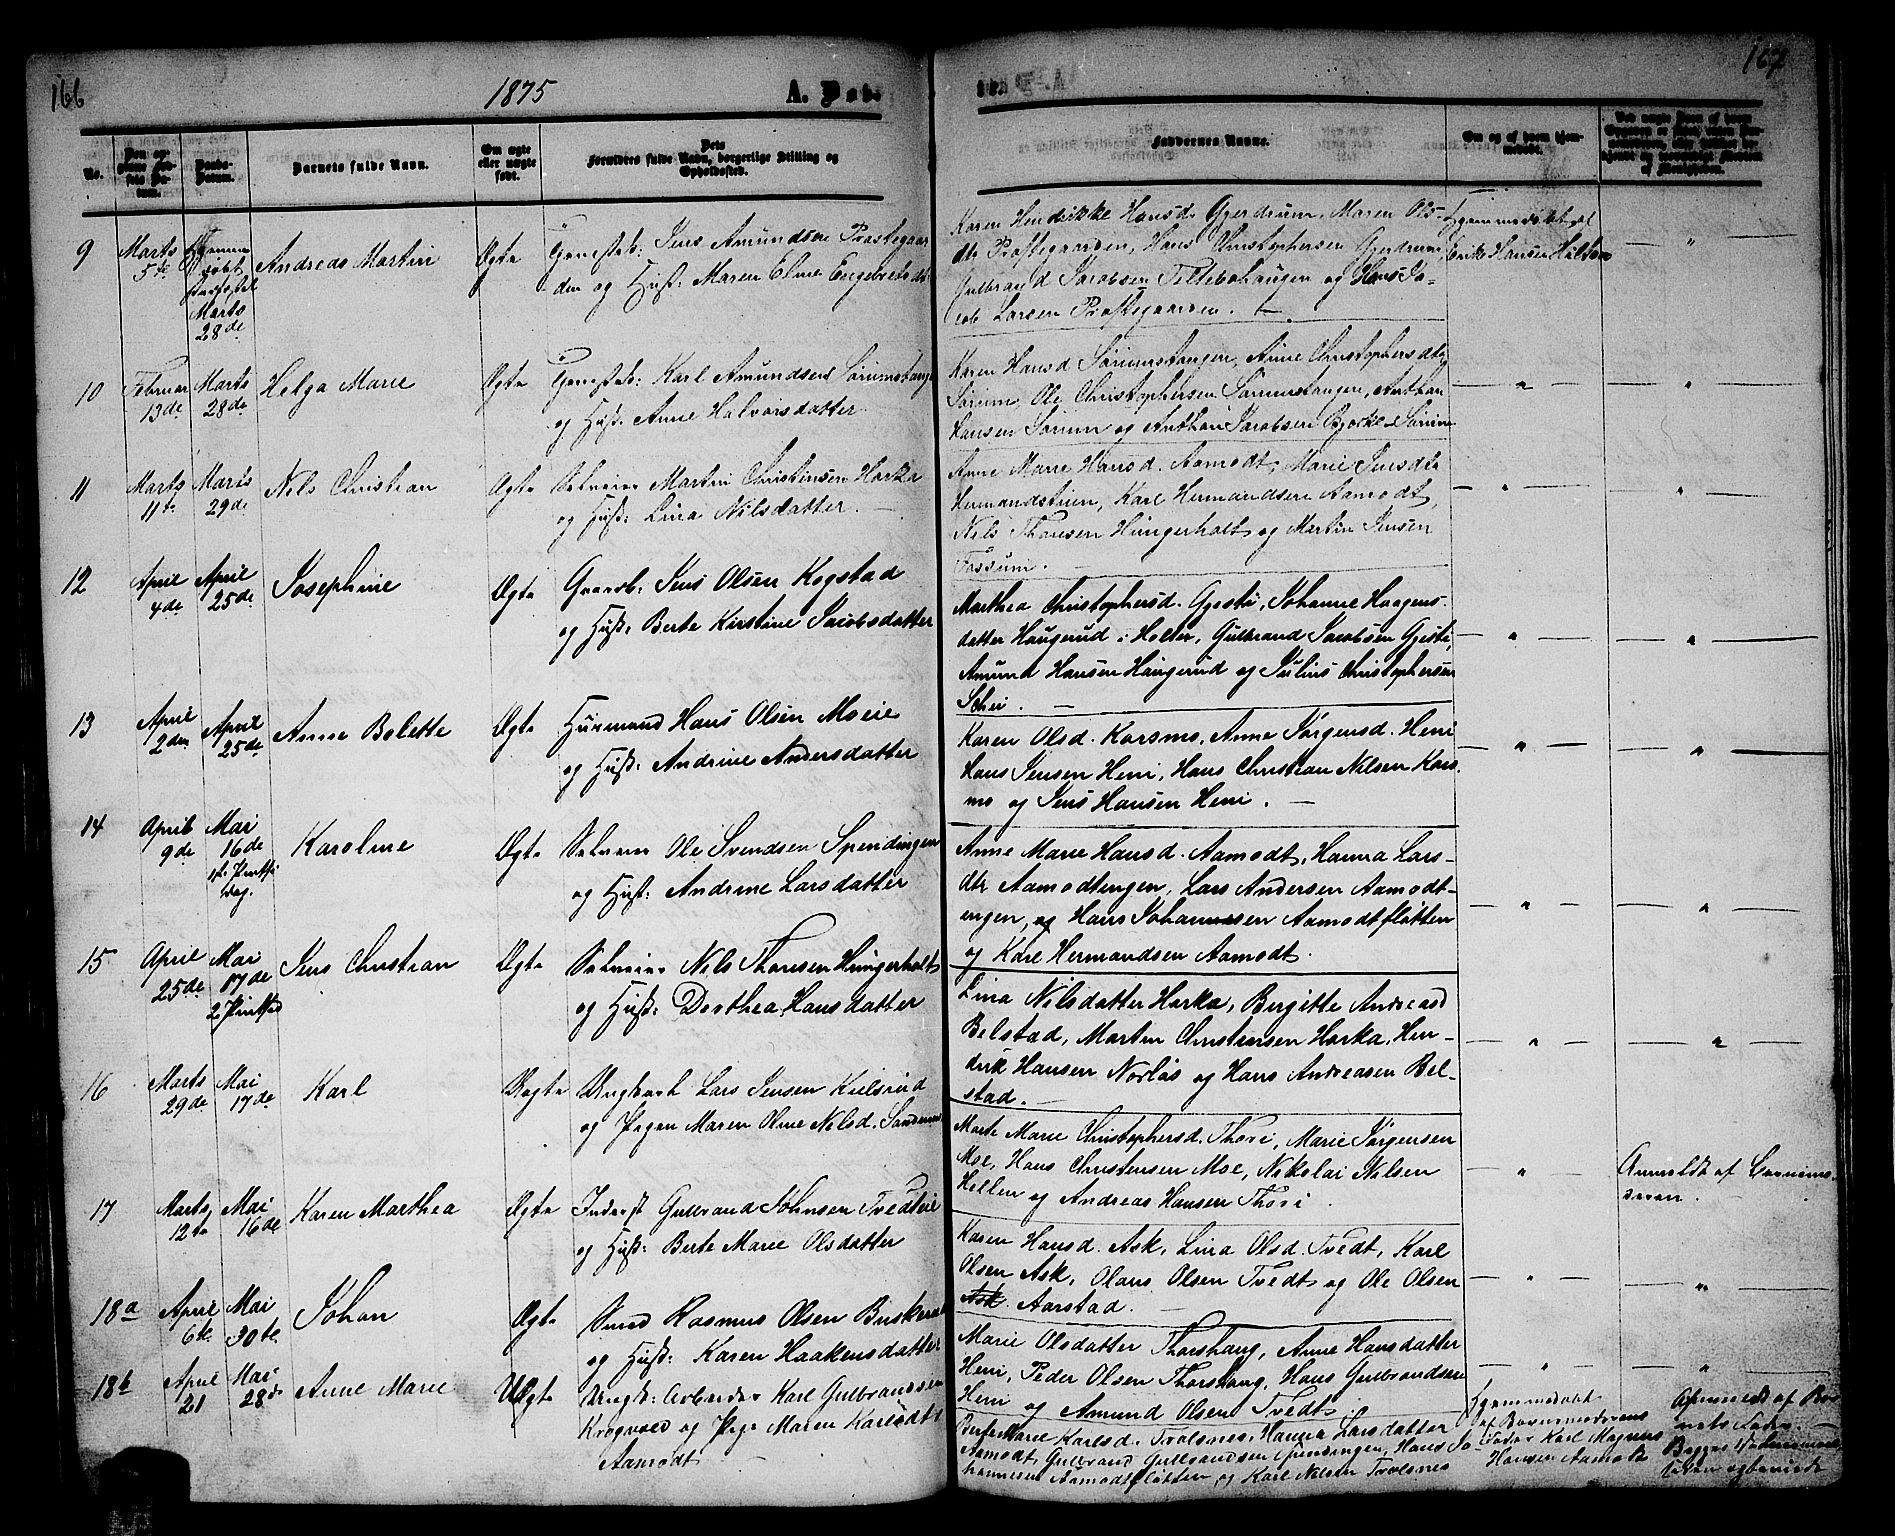 166
1875
A. Fød.
167
No.
Barnets fulde Navn.
Om ægte
eller uægte
født.
Forældres fulde Navn, borgerlige Stilling og
Opholdssted.
Faddernes Navne.
Om og af hvem hjem-
medøbt.
9
Marts
5te
Marts
28de
Andreas Martin
Ægte
Jens Amundsen Præstegaar
den og Hust: Maren Eline Engebretsdtr
Karen Hendrikke Hansd. Gjerdrum, Maren Ols-
dtr Præstegaarden, Hans Christophersen Gjerdrum,
Gulbrand Jacobsen og Hans Ja-
cob Larsen Præstegaarden.
Hjemmedøbt af
Erik Hansen
10
Februar
13de
Marts
28de
Helga Marie
Ægte
Karl Amundsen Sørumstangen
og Hust: Anne Halvorsdatter
Karen Hansd Sørumstangen, Anne Christophersdtr
Sørum, Ole Christophersen Sørumstangen, Anthon
Hansen Sørum og Anthon Jacobsen Bjørke Sørum
11
Marts
11te
Marts
29de
Nils Christian
Ægte
Selveier Martin Christensen Harka
og Hust: Lina Nilsdatter.
Anne Marie Hansd. Aamodt, Marie Jensdtr
Hermandstuen, Karl Hermandsen Aamodt,
Nils Thoresen Hungerholt og Martin Jensen
Fossum.
12
April
4de
April
25de
Josephine
Ægte
Gaardb: Jens Olsen Kogstad
og Hust: Berte Kirstine Jacobsdatter
Marthea Christophersd. Gjesti, Johanne Haagens-
datter Haugerud i Holter, Gulbrand Jacobsen Gjesti,
Amund Hansen Haugerud og Julius Christophersen
13
April
2den
April
25de
Anne Bolette
Ægte
Huusmand Hans Olsen Moeie
og Hust: Andrine Andersdatter
Karen Olsd. Korsmo, Anne Jørgensd. Heni
Hans Jensen Heni, Hans Christian Nilsen Kors
mo og Jens Hansen Heni.
14
April
9de
Mai
16de
1te Pintse
dag.
Karoline
Ægte
Selveier Ole Svendsen Spendingen
og Hust: Andrine Larsdatter
Anne Marie Hansd. Aamodt, Hanna Lars-
dtr Aamodtengen, Lars Andersen Aamodt-
engen, og Hans Johannesen Aamodtfløtten
og Karl Hermandsen Aamodt.
15
April
25de
Mai
17de
2 Pintsed
Jens Christian
Ægte
Selveier Nils Thoresen Hungerholt
og Hust: Dorthea Hansdatter
Lina Nilsdatter Harka, Bergitte Andreasd
Belstad, Martin Christensen Harka, Hen-
drik Hansen Norløs og Hans Andreasen Bel-
stad.
16
Marts
29de
Mai
17de
Karl
Uægte
Ungkarl Lars Jensen Kielsrud
og Pigen Maren Oline Nilsd.
Marte Marie Christophersd. Thori, Marie Jørgensen
Moe, Hans Christensen Moe, Nikolai Nilsen
Hellen og Andreas Hansen Thori.
Anmeldt af
17
Marts
12te
Mai
16de
Karen Marthea
Ægte
Inderst Gulbrand Johnsen Tvedteie
og Hust: Berte Marie Olsdatter
Karen Hansd. Ask, Lina Olsd. Tvedt, Karl
Olsen Ask, Olaus Olsen Tvedt og Ole Olsen
Ask. Aarstad.
18a
April
6te
Mai
30te
Johan
Ægte
Smed Rasmus Olsen
og Hust: Karen Haakensdatter
Marie Olsdatter Thorshaug, Anne Hansdatter
Heni, Peder Olsen Thorshaug, Hans Gulbrandsen
Heni og Amund Olsen Tvedt.
18b
April
21
Mai
28de
Anne Marie
Uægte
Ungk: Arbeider Karl Gulbrandsen
Krogvold og Pige Maren Karlsdtr
Aamodt
Berte Marie Karlsd. Trolsnes, Hanna Larsdatter
Aamodt, Gulbrand Gulbrandsen Spendingen, Hans Jo-
hannesen Aamodtfløtten og Karl Nilsen Trolsnes
Hjemmedøbt
af Barnemoderens
Fader Karl Magnus
Hansen Aamodt
Anmeldt af Bar
nets Fader.
Begges